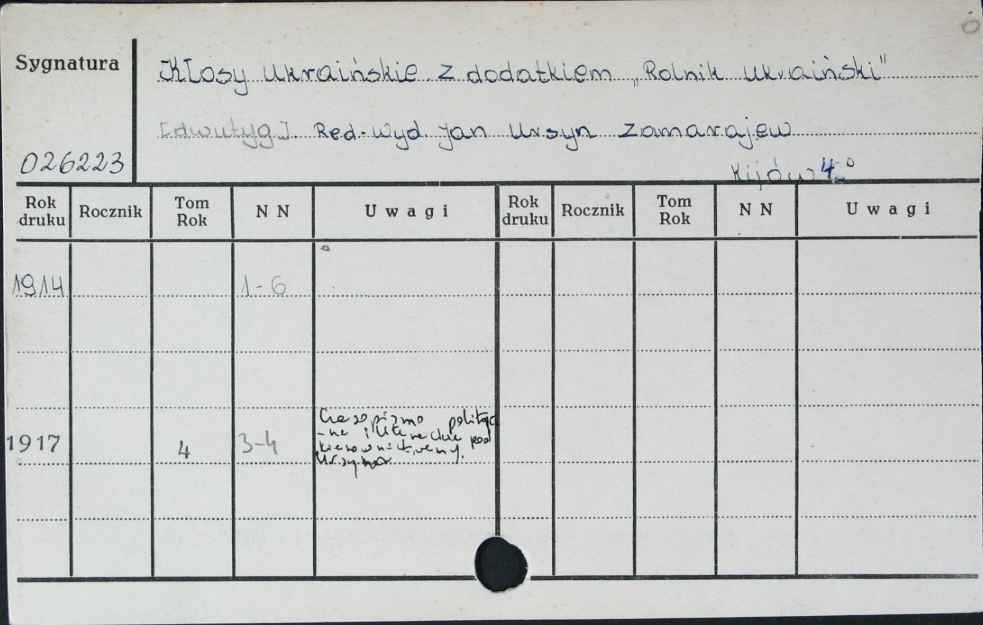 Sygnatura
Kłosy Ukraińskie z dodatkiem „Rolnik Ukraiński"
[dwutyg]. Red.-Wyd. Jan Ursyn Zamarajew
026223
Kijów 4°
Rok druku Rocznik Tom Rok N N Uwagi Rok druku Rocznik Tom Rok N N Uwagi
1914 1-6
1917 4 3-4
Czasopismo polityc
-ne i literackie pod
Ursyna